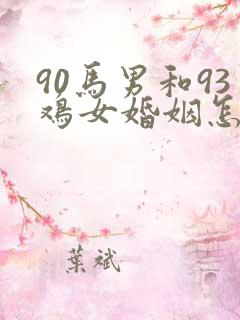 90馬男和93
鸡女婚姻怎
葉斌